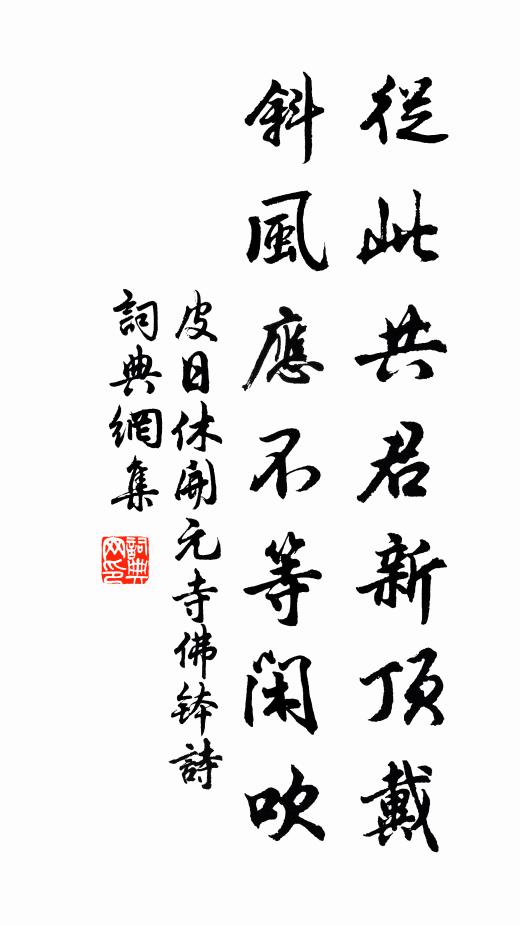 從此共君新頂戴
斜風應不等閑吹
皮日休開元寺佛鉢詩
詞典網集
詞典
网印